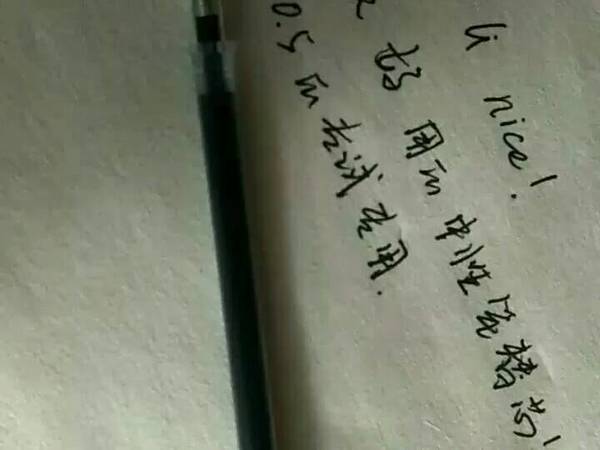 li nice!
好用的中性笔替芯!
0.5的考试专用.